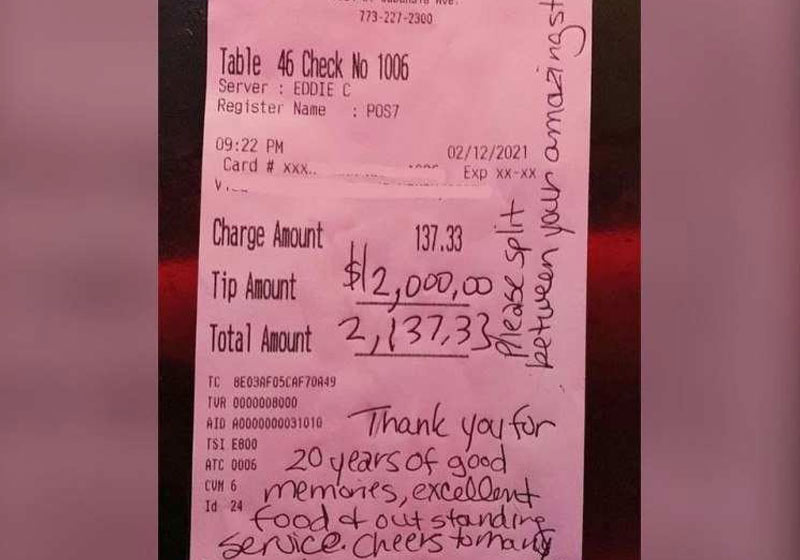 773-227-2300
Table 46 Check No 1006
Server : EDDIE C
Register Name : POS7
09:22 PM 02/12/2021
Card # xxx.. Exp xx-xx
Charge Amount 137.33
Tip Amount $2,000,00
Total Amount 2,137.33
TC 8E03AF05CAF70A49
TVR 0000008000
AID A0000000031010
TSI E800
ATC 0006
CVM 6
Id 24
Thank you for
20 years of good
memories, excellent
food & outstanding
service. Cheers to many
Please split
between your amazing